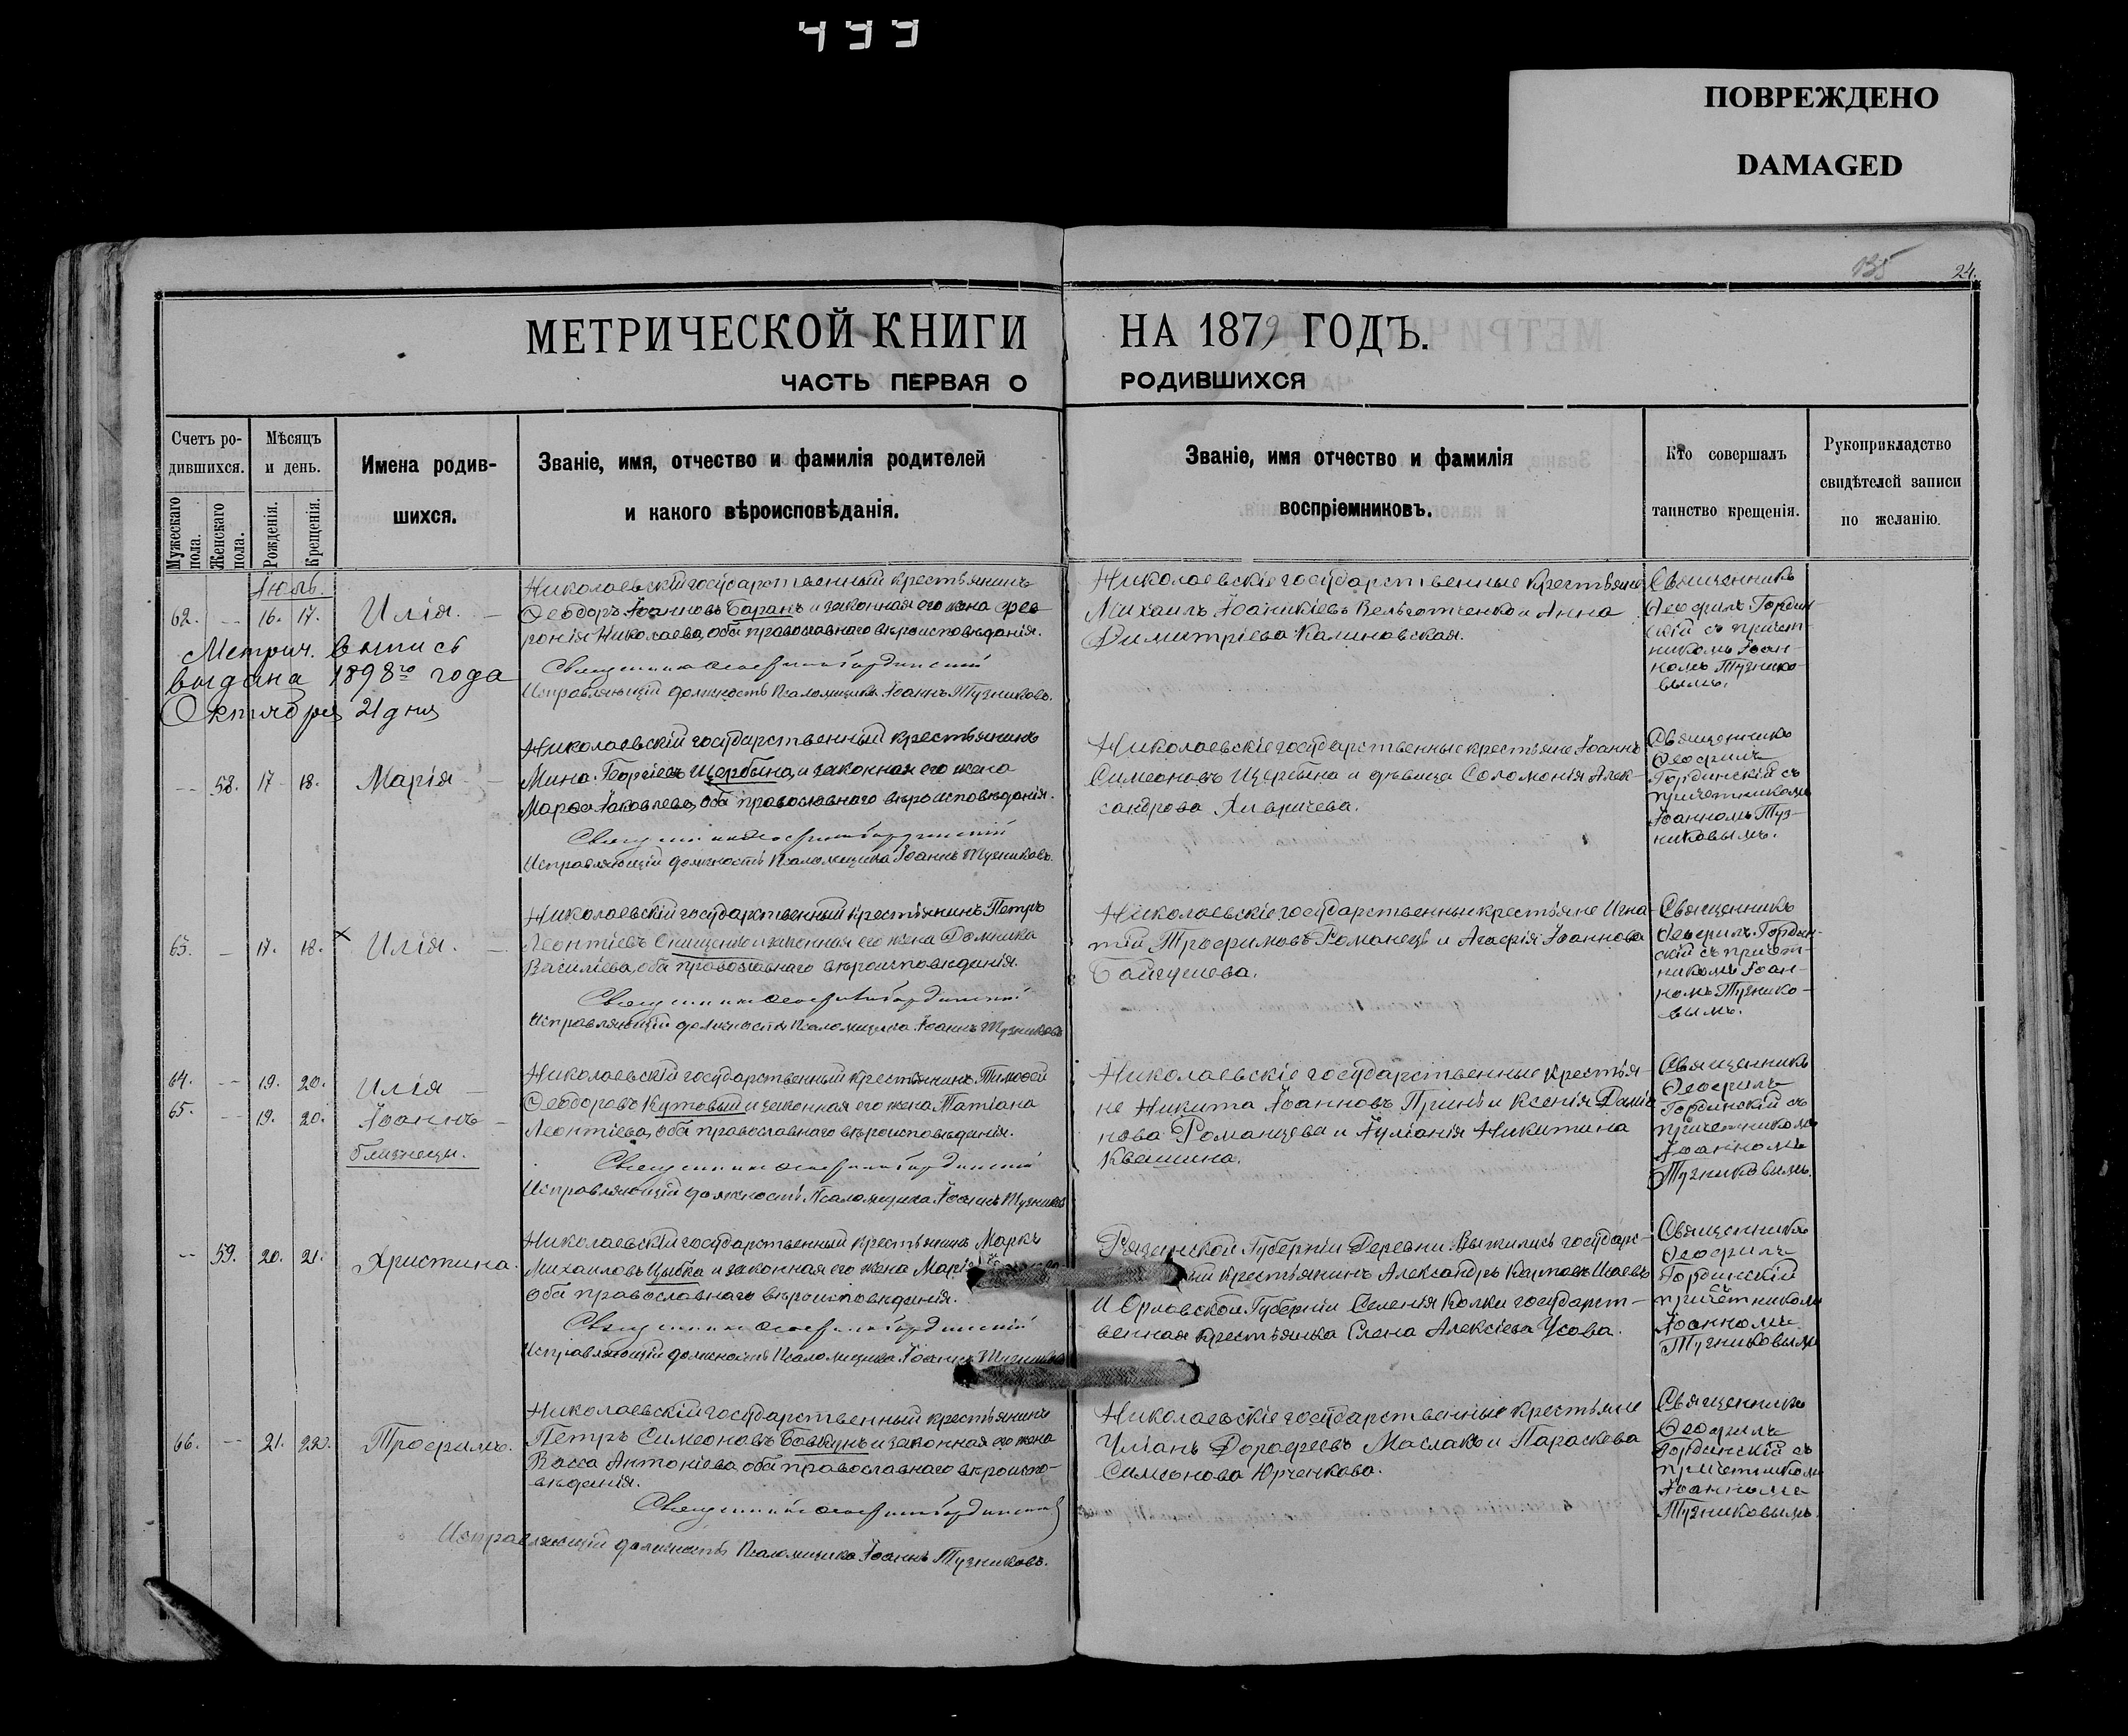 499
ПОВРЕЖДЕНО
DAMAGED
135
24.
МЕТРИЧЕСКОЙ КНИГИ НА 1879 ГОДЪ.
ЧАСТЬ ПЕРВАЯ О РОДИВШИХСЯ
Счетъ ро-
дившихся.
Мужескаго
пола.
Женскаго
пола.
Мѣсяцъ
и день.
Рожденія.
Крещенія.
Имена родив-
шихся.
Званіе, имя, отчество и фамилія родителей
и какого вѣроисповѣданія.
Званіе, имя отчество и фамилія
воспріемниковъ.
Кто совершалъ
таинство крещенія.
Рукоприкладство
свидѣтелей записи
по желанію.
Іюль.
62. -- 16. 17. Илія. --
Метрич. выпись
выдана 1898го года
Октября 21 дня
Николаевскій государственный крестьянинъ
Ѳеодоръ Іоанновъ Баранъ и законная его жена Фев-
ронія Николаева, оба православнаго вѣроисповѣданія.
Священникъ Ѳеофилъ Гординскій
Исправляющій должность Псаломщика Іоаннъ Тузниковъ.
Николаевскіе государственные крестьяне
Михаилъ Іоаникіевъ Вельготченко и Анна
Димитріева Калиновская.
Священникъ
Ѳеофилъ Гордин-
скій съ причет-
никомъ Іоан-
номъ Тузнико-
вымъ.
-- 58. 17 18. Марія --
Николаевскій государственный крестьянинъ
Мина Георгіевъ Щербина, и законная его жена
Марѳа Іаковлева, оба православнаго вѣроисповѣданія.
Священникъ Ѳеофилъ Гординскій
Исправляющій должность Псаломщика Іоаннъ Тузниковъ.
Николаевскіе государственные крестьяне Іоаннъ
Симеоновъ Щербина и дѣвица Соломонія Алек-
сандрова
Священникъ
Ѳеофилъ
Гординскій съ
причетникомъ
Іоанномъ Туз-
никовымъ.
63. -- 17. 18. х Илія. --
Николаевскій государственный крестьянинъ Петръ
Леонтіевъ Онищенко и законная его жена Домника
Василіева, оба православнаго вѣроисповѣданія.
Священникъ Ѳеофилъ Гординскій
Исправляющій должность Псаломщика Іоаннъ Тузниковъ
Николаевскіе государственные крестьяне Игна-
тій Трофимовъ Романецъ и Агафія Іоаннова
Байгушева.
Священникъ
Ѳеофилъ Гордин-
скій съ причет-
никомъ Іоан-
номъ Тузнико-
вымъ.
64. -- 19. 20. Илія --
65. -- 19. 20. Іоаннъ --
близнецы.
Николаевскій государственный крестьянинъ Тимофей
Ѳеодоровъ Кутовый и законная его жена Татіана
Леонтіева, оба православнаго вѣроисповѣданія.
Священникъ Ѳеофилъ Гординскій
Исправляющій должность Псаломщика Іоаннъ Тузниковъ
Николаевскіе государственные крестья-
не Никита Іоанновъ Принь и Ксенія Даніи-
лова Романцева и Іуліанія Никитина
Квашина.
Священникъ
Ѳеофилъ
Гординскій съ
причетникомъ
Іоанномъ
Тузниковымъ.
-- 59. 20. 21. Христина.
Николаевскій государственный крестьянинъ Маркъ
Михаиловъ Цыбка и законная его жена Марія
оба православнаго вѣроисповѣданія.
Священникъ Ѳеофилъ Гординскій
Исправляющій должность Псаломщика Іоаннъ Тузниковъ
Рязанской Губерніи Деревни государс-
ый крестьянинъ Александръ Карповъ Исаевъ
и Орловской Губерніи Селенія Колки государст-
венная крестьянка Елена Алексіева Усова.
Священникъ
Ѳеофилъ
Гординскій
съ
причетникомъ
Іоанномъ
Тузниковымъ
66. -- 21. 22. Трофимъ.
Николаевскій государственный крестьянинъ
Петръ Симеоновъ Бовкунъ и законная его жена
Васса Антоніева, оба православнаго вѣроиспо-
вѣданія.
Священникъ Ѳеофилъ Гординскій
Исправляющій должность Псаломщика Іоаннъ Тузниковъ.
Николаевскіе государственные крестьяне
Уліанъ Дорофеевъ Маслакъ и Параскева
Симеонова Юрченкова.
Священникъ
Ѳеофилъ
Гординскій съ
причетникомъ
Іоанномъ
Тузниковымъ.